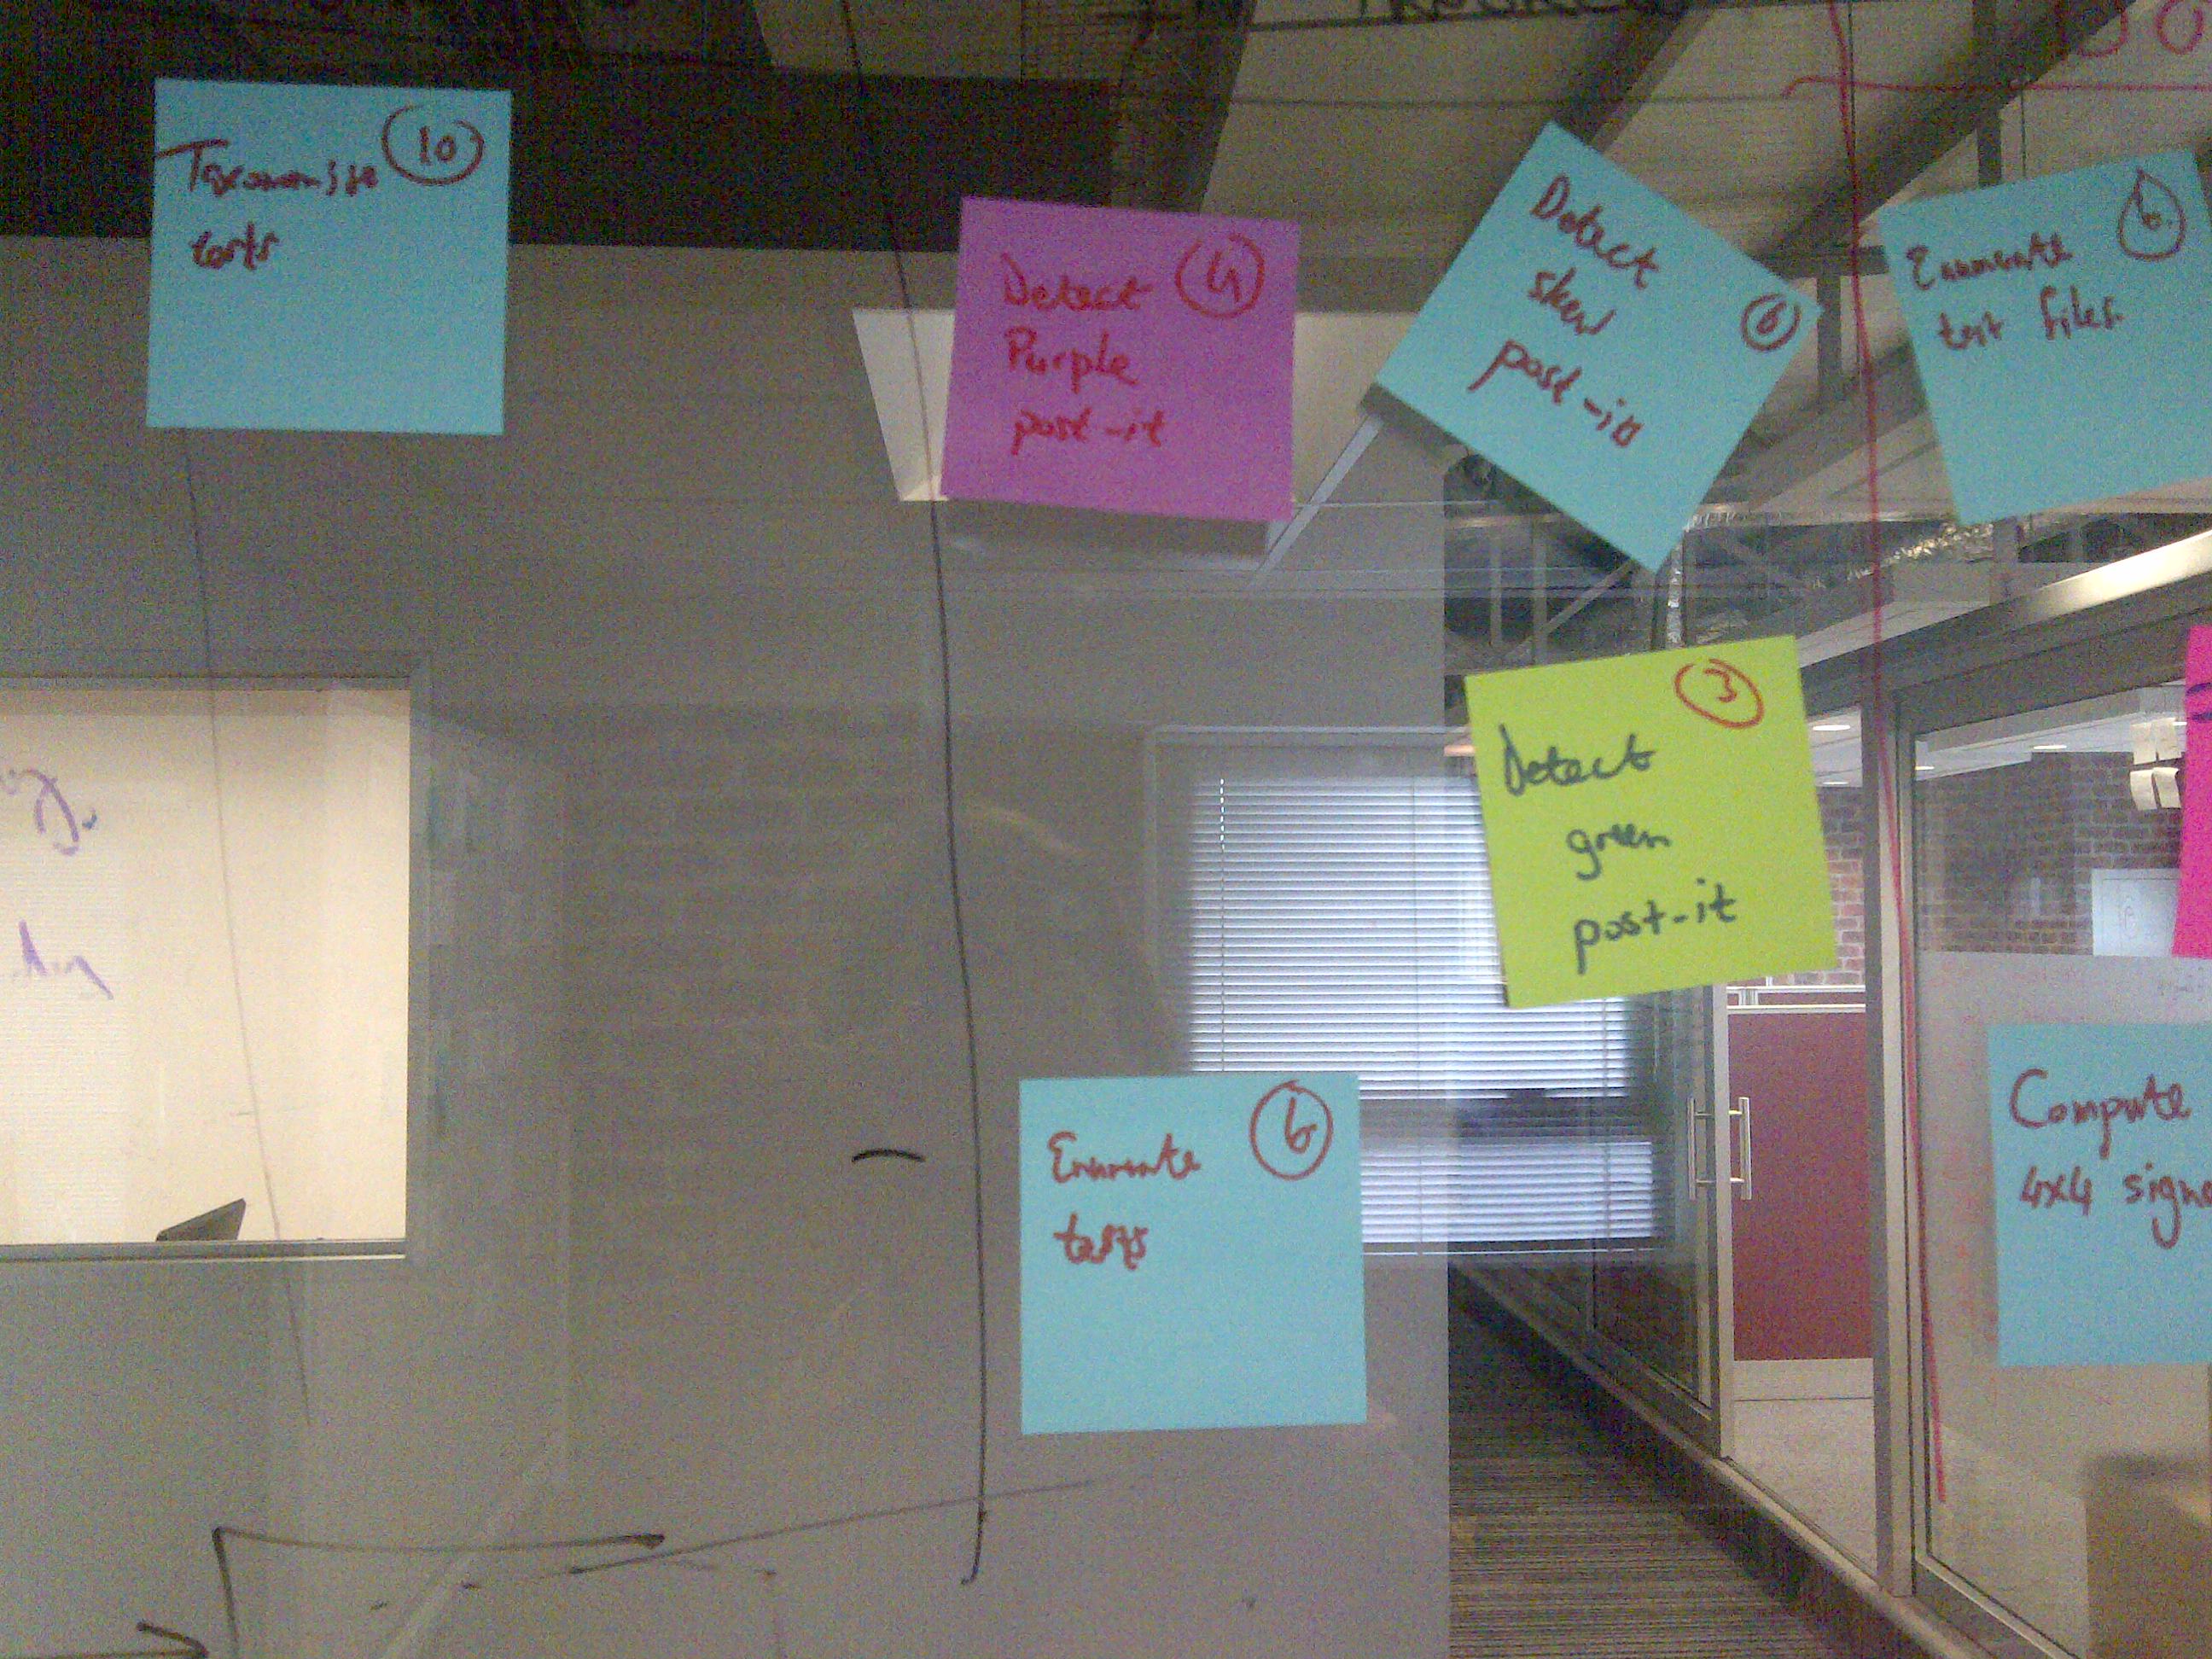 Taxonomise
10
tests
Detect
4
Purple
post-it
Detect
skew
6
post-it
Enumerate
6
test files
3
Detect
green
post-it
Enumerate
6
tests
Compute
4x4